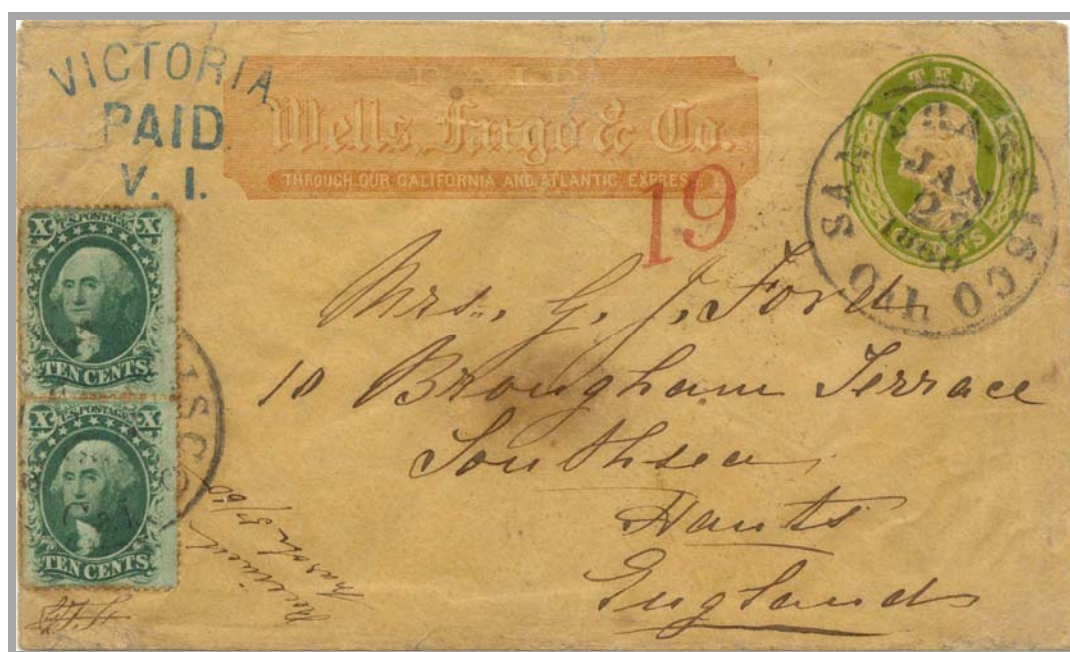 VICTORIA
PAID
V. I.
PAID
Wells, Fargo & Co.
THROUGH OUR CALIFORNIA AND ATLANTIC EXPRESS
19
TEN
CENTS
SAN FRANCISCO
JAN
1860
X U.S. POSTAGE X
TEN CENTS
X U.S. POSTAGE X
TEN CENTS
ISCO
Cal
Mrs. G. J. Ford
10 Brougham Terrace
Southsea
Hants
England
Received
March 5/60